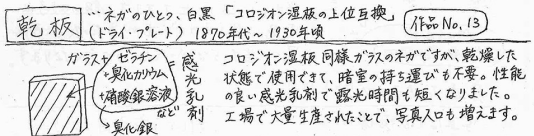 乾板
…ネガのひとつ、白黒「コロジオン湿板の上位互換」
(ドライ・プレート) 1870年代〜1930年頃
作品No.13
ガラス+ゼラチン
+臭化カリウム
+硝酸銀溶液
など
=感光乳剤
臭化銀
コロジオン湿板同様ガラスのネガですが、乾燥した
状態で使用できて、暗室の持ち運びも不要。性能
の良い感光乳剤で露光時間も短くなりました。
工場で大量生産されたことで、写真人口も増えます。